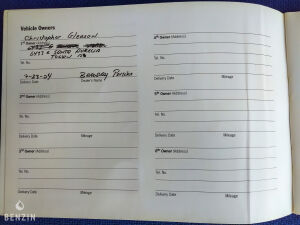 Vehicle Owners
Christopher Gleason
1st Owner (Address)
6422 E Santa Aurelia
Tucson
Tel. No.
7-23-04
Delivery Date
Dealer's Name
2nd Owner (Address)
Tel. No.
Delivery Date Mileage
3rd Owner (Address)
Tel. No.
Delivery Date Mileage
4th Owner (Address)
Tel. No.
Delivery Date Mileage
5th Owner (Address)
Tel. No.
Delivery Date Mileage
6th Owner (Address)
Tel. No.
Delivery Date Mileage
BENZIN